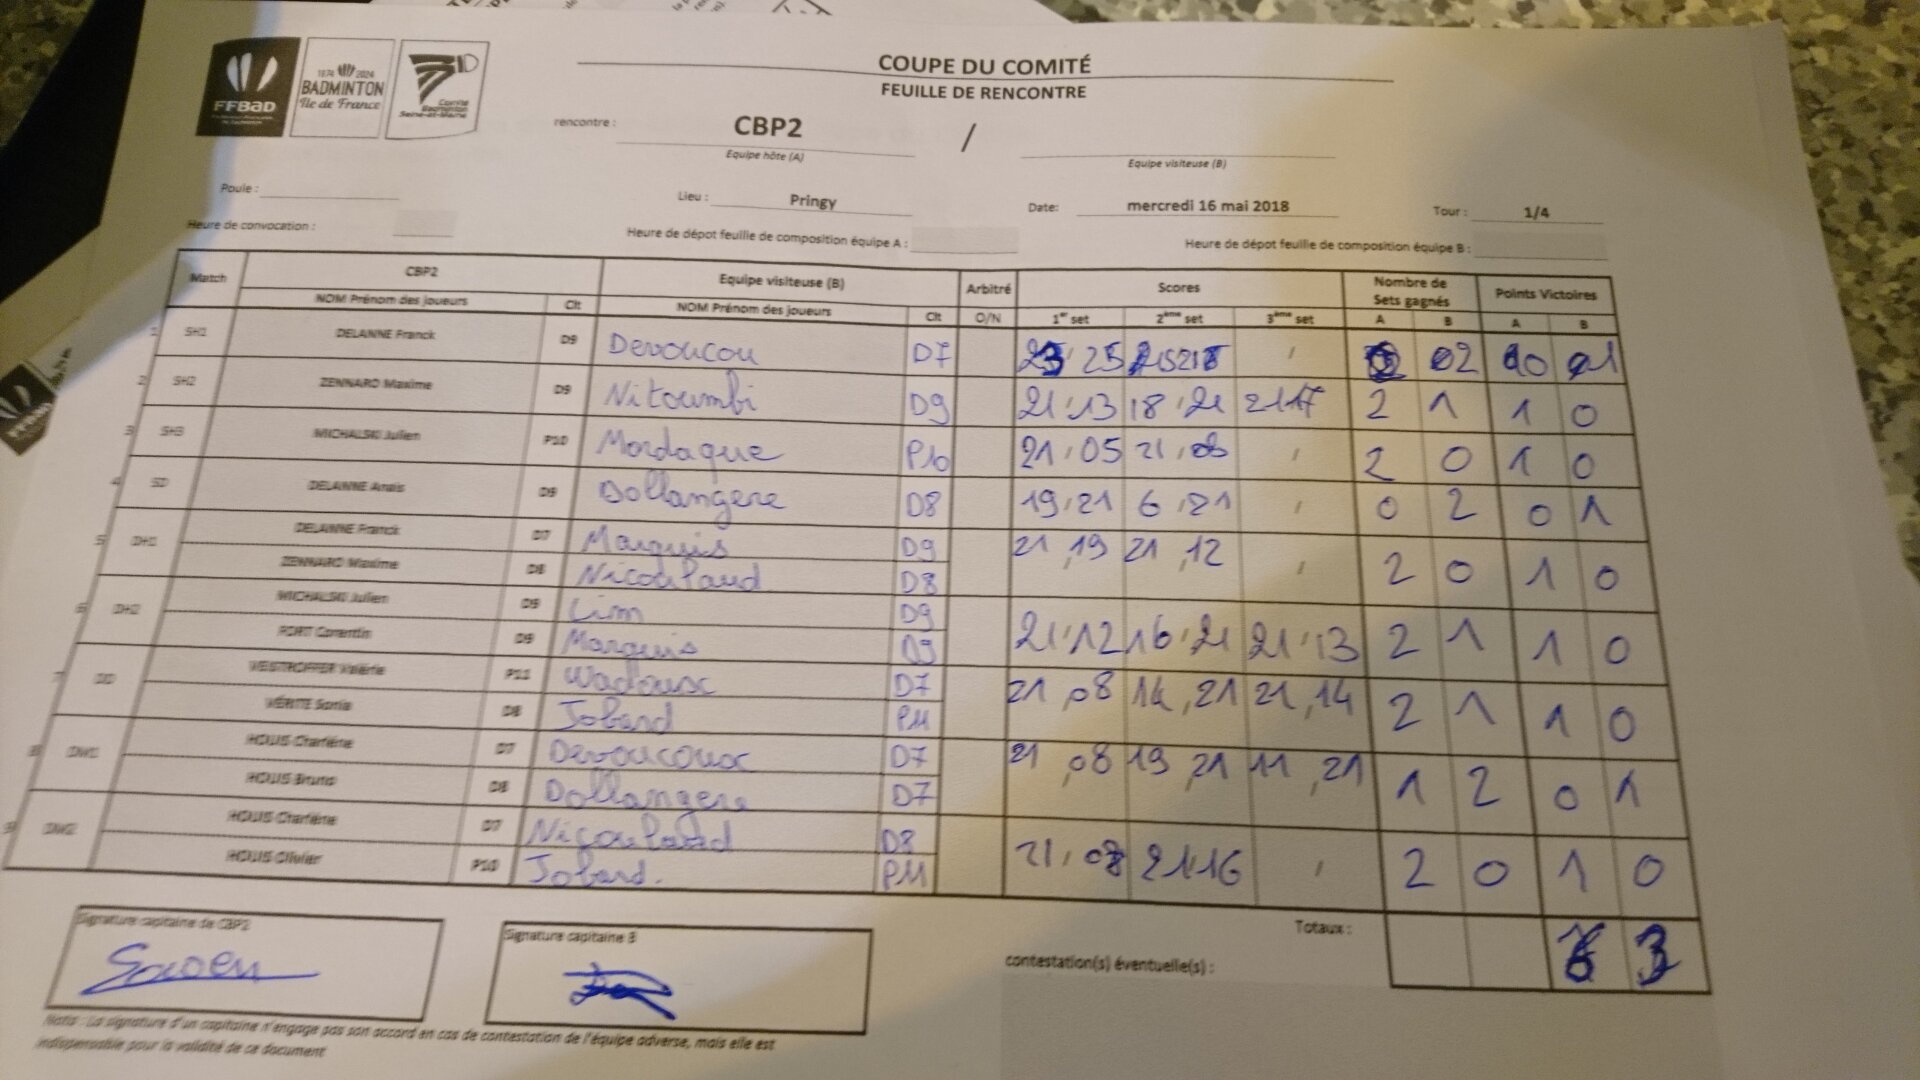 COUPE DU COMITÉ
FEUILLE DE RENCONTRE
FFBaD
1874 2024
BADMINTON
Ile de France
Comité
Badminton
Seine-et-Marne
rencontre : CBP2 /
Equipe hôte (A) Equipe visiteuse (B)
Poule : Lieu : Pringy Date: mercredi 16 mai 2018 Tour : 1/4
Heure de convocation : Heure de dépot feuille de composition équipe A : Heure de dépot feuille de composition équipe B :
Match CBP2 Equipe visiteuse (B) Arbitré Scores Nombre de Sets gagnés Points Victoires
NOM Prénom des joueurs Clt NOM Prénom des joueurs Clt O/N 1er set 2ème set 3ème set A B A B
1 SH1 DELANNE Franck D9 Devoucou D7 25 / 02
2 SH2 ZENNARD Maxime D9 Nitoumbi D9 21 / 13 18 / 21 21 17 2 1 1 0
3 SH3 MICHALSKI Julien P10 Mordaque P10 21 / 05 21 / 08 / 2 0 1 0
4 SD DELANNE Anais D9 Dollangere D8 19 / 21 6 / 21 / 0 2 0 1
5 DH1 DELANNE Franck D7 Marquis D9 21 , 19 21 , 12 / 2 0 1 0
ZENNARD Maxime D8 Nicoulaud D8
6 DH2 MICHALSKI Julien D9 Lim D9 21 / 12 16 / 21 21 / 13 2 1 1 0
PORT Corentin D9 Marquis D9
7 DD WEISTROFFER Valérie P11 Wadoux D7 21 , 08 14 , 21 21 , 14 2 1 1 0
VÉRITTE Sonia D8 Jobard P11
8 DMX1 HOUIS Charlène D7 Devoucoux D7 21 , 08 19 , 21 11 , 21 1 2 0 1
HOUIS Bruno D8 Dollangere D7
9 DMX2 HOUIS Charlène D7 Nicoulaud D8 21 / 08 21 16 / 2 0 1 0
HOUIS Olivier P10 Jobard. P11
Totaux : 6 3
Signature capitaine de CBP2
Signature capitaine B
contestation(s) éventuelle(s) :
Nota : La signature d'un capitaine n'engage pas son accord en cas de contestation de l'équipe adverse, mais elle est
indispensable pour la validité de ce document